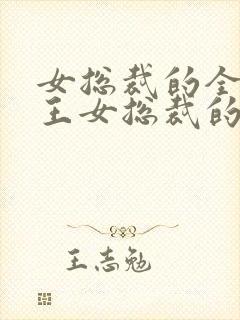 女总裁的全
王女总裁的
王志勉